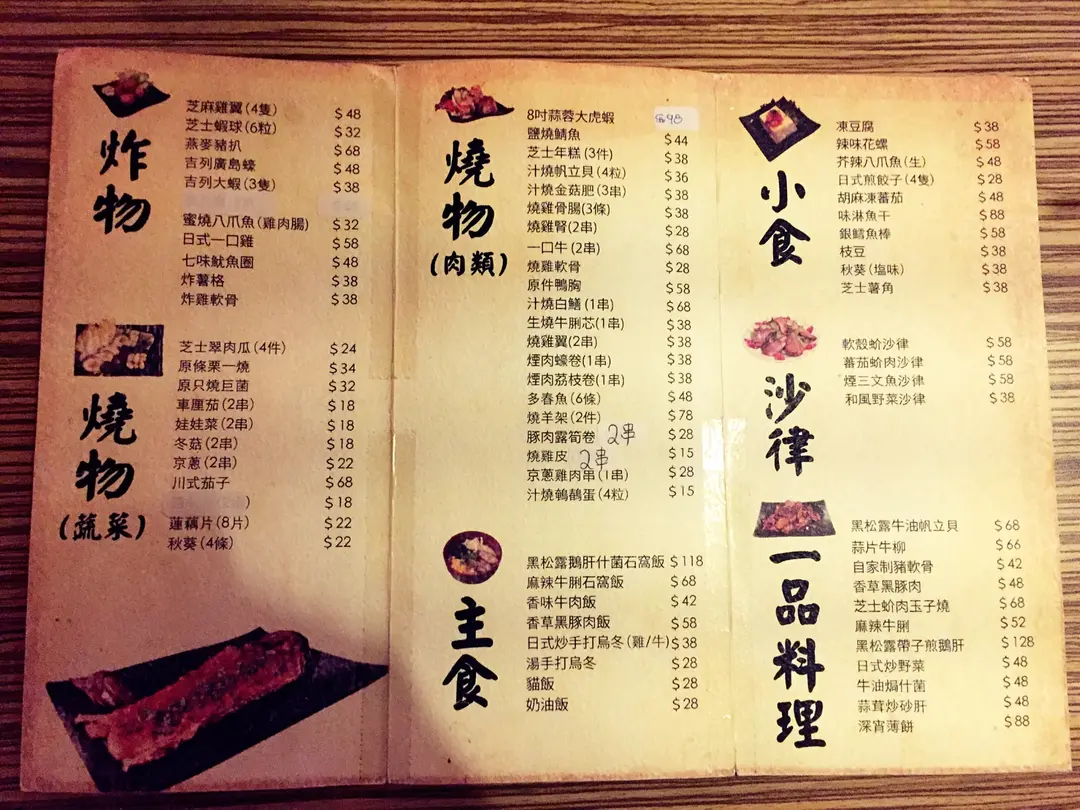 炸物
芝麻雞翼(4隻) $48
芝士蝦球(6粒) $32
燕麥豬扒 $68
吉列廣島蠔 $48
吉列大蝦(3隻) $38
蜜燒八爪魚(雞肉腸) $32
日式一口雞 $58
七味魷魚圈 $48
炸薯格 $38
炸雞軟骨 $38
燒物
(蔬菜)
芝士翠肉瓜(4件) $24
原條粟一燒 $34
原只燒巨菌 $32
車厘茄(2串) $18
娃娃菜(2串) $18
冬菇(2串) $18
京蔥(2串) $22
川式茄子 $68
$18
蓮藕片(8片) $22
秋葵(4條) $22
燒物
(肉類)
8吋蒜蓉大虎蝦 $98
鹽燒鯖魚 $44
芝士年糕(3件) $38
汁燒帆立貝(4粒) $36
汁燒金菇肥(3串) $38
燒雞骨腸(3條) $38
燒雞腎(2串) $28
一口牛(2串) $68
燒雞軟骨 $28
原件鴨胸 $58
汁燒白鱔(1串) $68
生燒牛脷芯(1串) $38
燒雞翼(2串) $38
煙肉蠔卷(1串) $38
煙肉荔枝卷(1串) $38
多春魚(6條) $48
燒羊架(2件) $78
豚肉露筍卷 2串 $28
燒雞皮 2串 $15
京蔥雞肉串(1串) $28
汁燒鵪鶉蛋(4粒) $15
主食
黑松露鵝肝什菌石窩飯 $118
麻辣牛脷石窩飯 $68
香味牛肉飯 $42
香草黑豚肉飯 $58
日式炒手打烏冬(雞/牛) $38
湯手打烏冬 $28
貓飯 $28
奶油飯 $28
小食
凍豆腐 $38
辣味花螺 $58
芥辣八爪魚(生) $48
日式煎餃子(4隻) $28
胡麻凍蕃茄 $48
味淋魚干 $88
銀鱈魚棒 $58
枝豆 $38
秋葵(塩味) $38
芝士薯角 $38
沙律
軟殼蚧沙律 $58
蕃茄蚧肉沙律 $58
煙三文魚沙律 $58
和風野菜沙律 $38
一品料理
黑松露牛油帆立貝 $68
蒜片牛柳 $66
自家制豬軟骨 $42
香草黑豚肉 $48
芝士蚧肉玉子燒 $68
麻辣牛脷 $52
黑松露帶子煎鵝肝 $128
日式炒野菜 $48
牛油焗什菌 $48
蒜茸炒砂肝 $48
深宵薄餅 $88